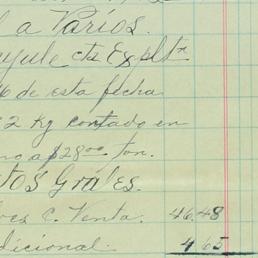 a Varios.
cts Explt
de esta fecha
2 Kg contado en
a $28.00 ton.
Gráles.
C. Venta. 46.48
dicional. 4 65